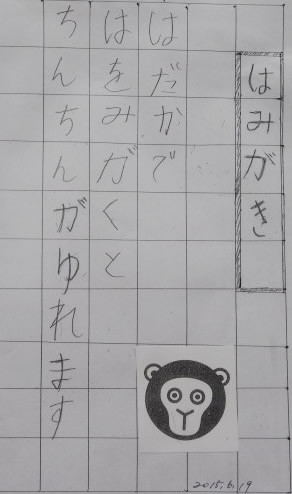 はみがき
はだかで
はをみがくと
ちんちん
がゆれます
2015.6.19